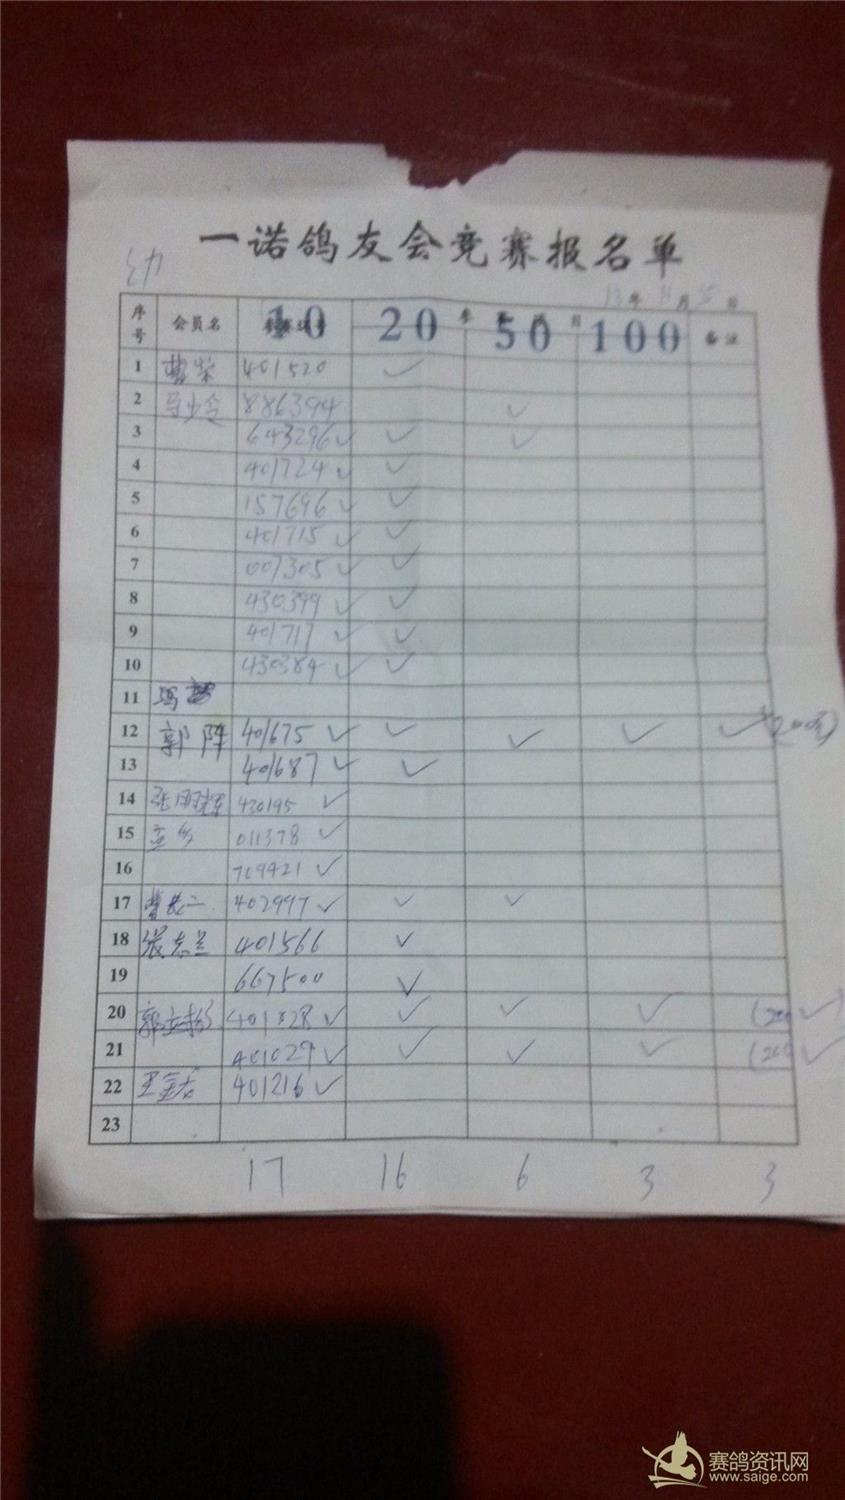 一诺鸽友会竞赛报名单
13年11月15日
序号 会员名 10 20 50 100 备注
1 401520 ✓
2 886394 ✓
3 643296 ✓ ✓ ✓
4 401724 ✓ ✓
5 157696 ✓ ✓
6 401715 ✓ ✓
7 007305 ✓ ✓
8 430399 ✓ ✓
9 401717 ✓ ✓
10 430384 ✓ ✓
11
12 郭阵 401675 ✓ ✓ ✓ ✓ ✓
13 401687 ✓ ✓
14 430195 ✓
15 011378 ✓
16 709421 ✓
17 402997 ✓ ✓ ✓
18 401566 ✓
19 667500 ✓
20 401028 ✓ ✓ ✓ ✓ ✓
21 401029 ✓ ✓ ✓ ✓ ✓
22 401216 ✓
23
17 16 6 3 3
赛鸽资讯网
www.saige.com